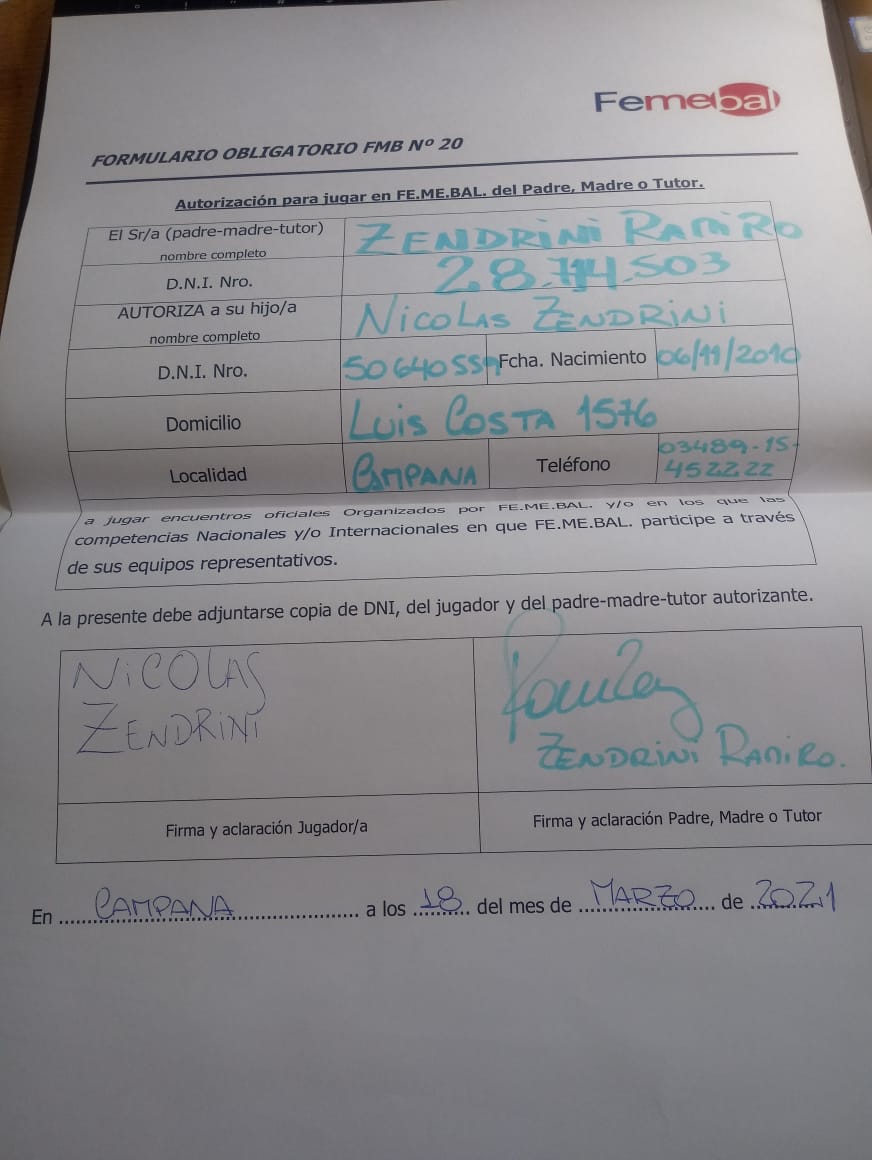 Femebal
FORMULARIO OBLIGATORIO FMB Nº 20
Autorización para jugar en FE.ME.BAL. del Padre, Madre o Tutor.
El Sr/a (padre-madre-tutor) ZENDRINI RAMIRO
nombre completo
D.N.I. Nro.
AUTORIZA a su hijo/a NICOLAS ZENDRINI
nombre completo
D.N.I. Nro. Fcha. Nacimiento 06/11/2010
Domicilio LUIS COSTA 1576
Localidad CAMPANA Teléfono 03489-15-
452222
a jugar encuentros oficiales Organizados por FE.ME.BAL. y/o en los que las
competencias Nacionales y/o Internacionales en que FE.ME.BAL. participe a través
de sus equipos representativos.
A la presente debe adjuntarse copia de DNI, del jugador y del padre-madre-tutor autorizante.
NICOLAS
ZENDRINI
ZENDRINI RAMIRO.
Firma y aclaración Jugador/a Firma y aclaración Padre, Madre o Tutor
En CAMPANA a los 18 del mes de MARZO de 2021